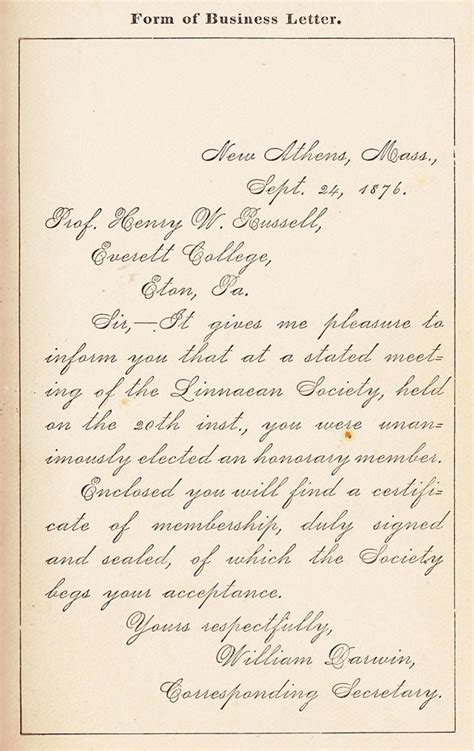 Form of Business Letter.
New Athens, Mass.,
Sept. 24, 1876.
Prof. Henry W. Russell,
Everett College,
Eton, Pa.
Sir,—It gives me pleasure to
inform you that at a stated meet-
ing of the Linnaean Society, held
on the 20th inst., you were unan-
imously elected an honorary member.
Enclosed you will find a certifi-
cate of membership, duly signed
and sealed, of which the Society
begs your acceptance.
Yours respectfully,
William Darwin,
Corresponding Secretary.